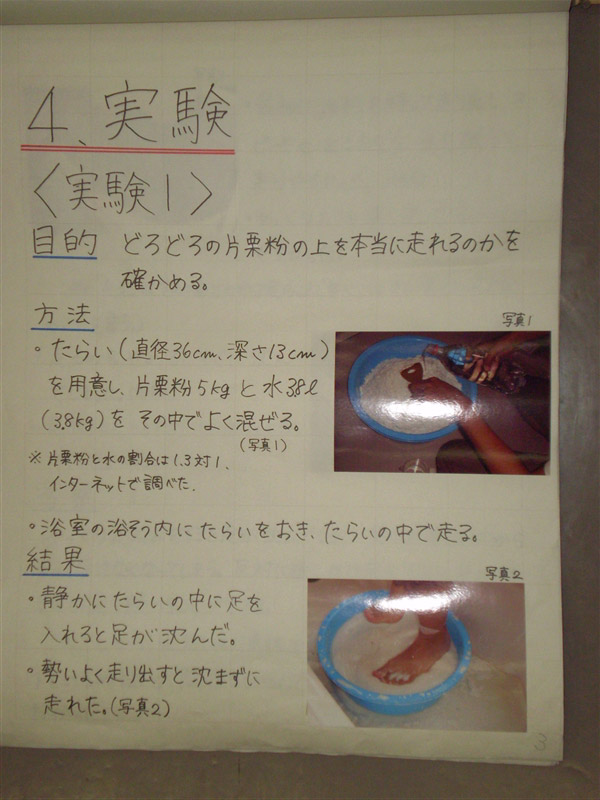 4、実験
〈実験1〉
目的 どろどろの片栗粉の上を本当に走れるのかを
確かめる。
方法
・たらい(直径36cm、深さ13cm)
を用意し、片栗粉5kgと水3.8l
(3.8kg)を その中でよく混ぜる。
(写真1)
※ 片栗粉と水の割合は1.3対1、
インターネットで調べた。
写真1
・浴室の浴そう内にたらいをおき、たらいの中で走る。
結果
・静かにたらいの中に足を
入れると足が沈んだ。
・勢いよく走り出すと沈まずに
走れた。(写真2)
写真2
3